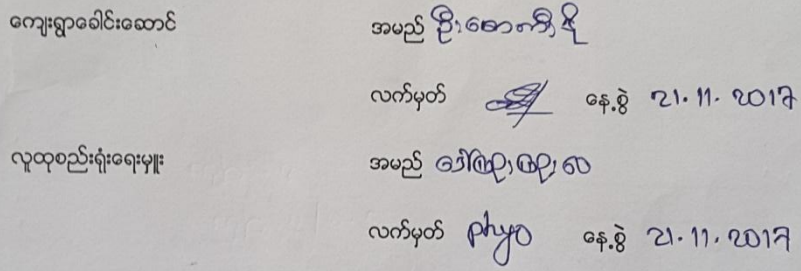 ကျေးရွာခေါင်းဆောင် အမည် ဦးစောကီနို
လက်မှတ် နေ့စွဲ 21.11.2017
လူထုစည်းရုံးရေးမှူး အမည် ဒေါ်ဖြူဖြူလ
လက်မှတ် phyo နေ့စွဲ 21.11.2017